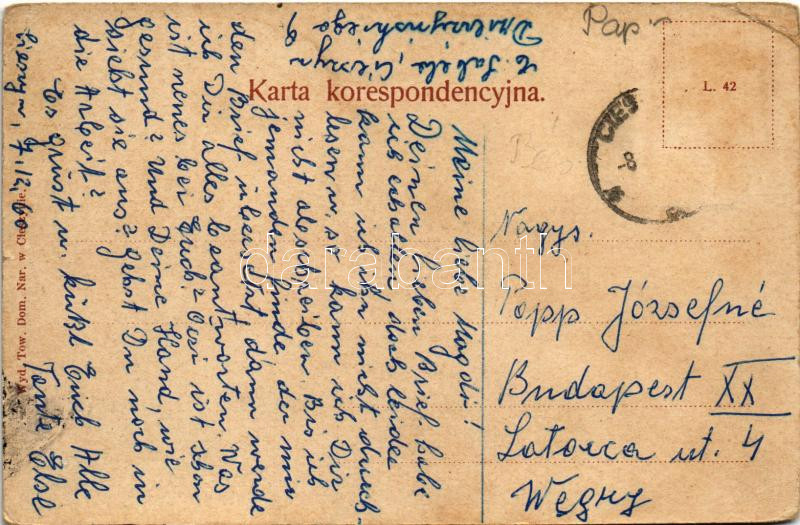 Karta korespondencyjna.
L. 42
Wyd. Tow. Dom. Nar. w Cieszynie.
CIES
8
Pap
Cieszyn
Meine liebe Magdi!
Deinen lieben Brief habe
ich erhalten doch leider
kann ich ihn nicht durch-
lesen u. so kann ich Dir
nicht abschreiben. Bis ich
jemanden finde der mir
den Brief übersetzt dann werde
ich Dir alles beantworten. Was
ist neues bei Euch? Ist schon
gesund? Und Deine Hand, wie
sieht sie aus? Gehst Du noch in
die Arbeit?
Es grüsst u. küsst Euch Alle
Tante Else
Cieszyn, 7.12.60
Nagys.
Papp Józsefné
Budapest XX
Latorca ut. 4
Węgry
darabanth